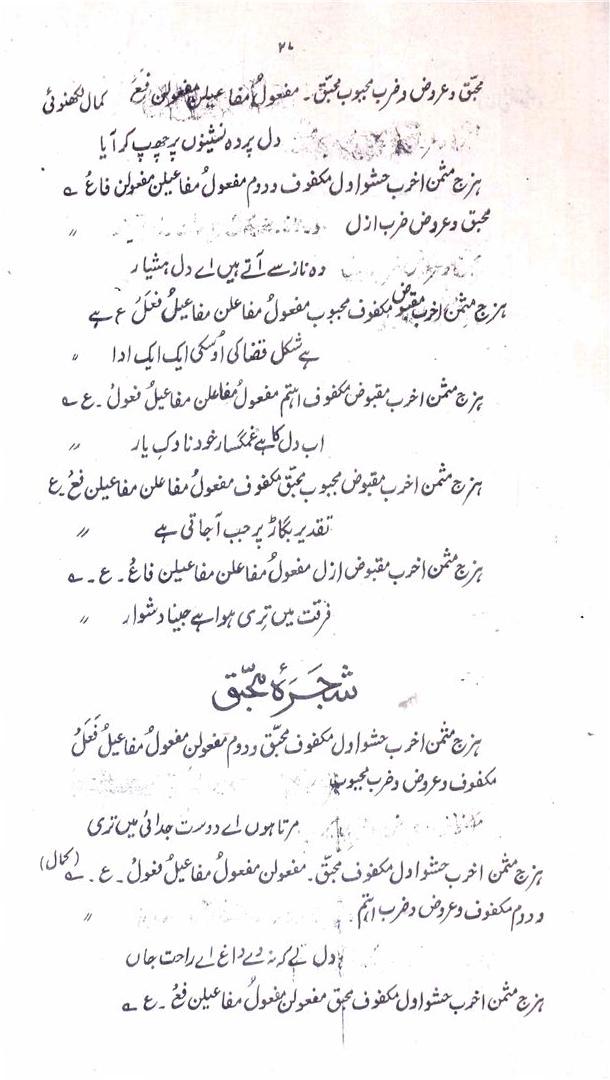 ۲۸
محبّق و عروض و ضرب محبوب محبّق۔ مفعولُ مفاعیلن مفعولن فَعْ کمال لکھنوئی
دل پردہ نشینوں پر چھپ کر آیا
ہزج مثمن اخرب حشو اول مکفوف و دوم مفعولُ مفاعیلن مفعولن فاعْ ے
محبق و عروض ضرب ازل 〃
وہ ناز سے آتے ہیں اے دل ہشیار
ہزج مثمن اخرب مقبوض مکفوف محبوب مفعولُ مفاعلن مفاعیلُ فَعَلْ ع ہے
ہے شکل قضا کی اوسکی ایک ایک ادا 〃
ہزج مثمن اخرب مقبوض مکفوف اہتم مفعولُ مفاعلن مفاعیلُ فعول۔ ع۔ ے
اب دل کا ہے غمگسار خود ناوکِ یار 〃
ہزج مثمن اخرب مقبوض محبوب محبّق مکفوف مفعولُ مفاعلن مفاعیلن فَعْ۔ ع
تقدیر بگاڑ پر جب آجاتی ہے 〃
ہزج مثمن اخرب مقبوض ازل مفعولُ مفاعلن مفاعیلن فاعْ۔ ع۔ ے
فرقت میں تِری ہوا ہے جینا دشوار 〃
شجرۂ محبّق
ہزج مثمن اخرب حشو اول مکفوف محبّق و دوم مفعولن مفعولُ مفاعیلُ فَعَلْ
مکفوف و عروض و ضرب محبوب
مرتا ہوں اے دوست جدائی میں تری
ہزج مثمن اخرب حشو اول مکفوف محبّق۔ مفعولن مفعولُ مفاعیلُ فعولْ۔ ع۔ ے (کمال)
و دوم مکفوف و عروض و ضرب اہتم۔ 〃
دل لے کہ نہ دے داغ اے راحت جاں
ہزج مثمن اخرب حشو اول مکفوف محبق مفعولن مفعولُ مفاعیلن فَعْ۔ ع ے